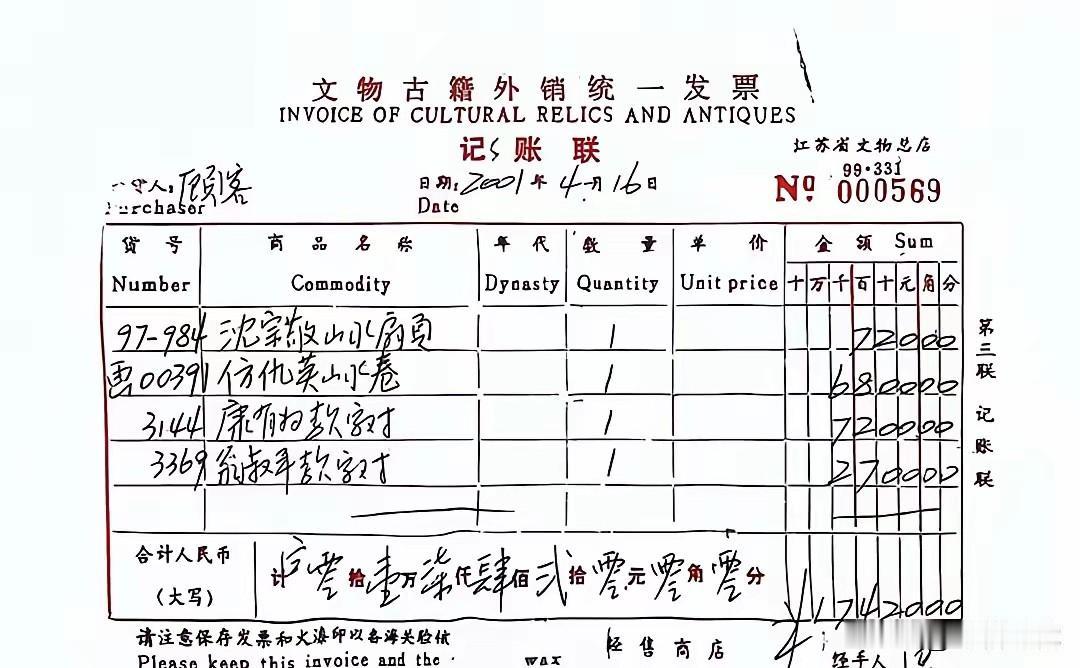 文物古籍外销统一发票
INVOICE OF CULTURAL RELICS AND ANTIQUES
记账联
江苏省文物总店
99·331
Nº 000569
人：顾客
Purchaser
日期：2001年4月16日
Date
货号 商品名称 年代 数量 单价 金额 Sum
Number Commodity Dynasty Quantity Unit price 十万千百十元角分
97-984 沈宗敬山水扇页 1 72000
画00391 仿仇英山水卷 1 680000
3144 康有为款字对 1 720000
3369 翁叔平款字对 1 270000
第三联 记账联
合计人民币
（大写）
计 零拾壹万柒仟肆佰贰拾零元零角零分
¥1742000
请注意保存发票和火漆印以备海关验核
Please keep this invoice and the wax
经售商店
经手人